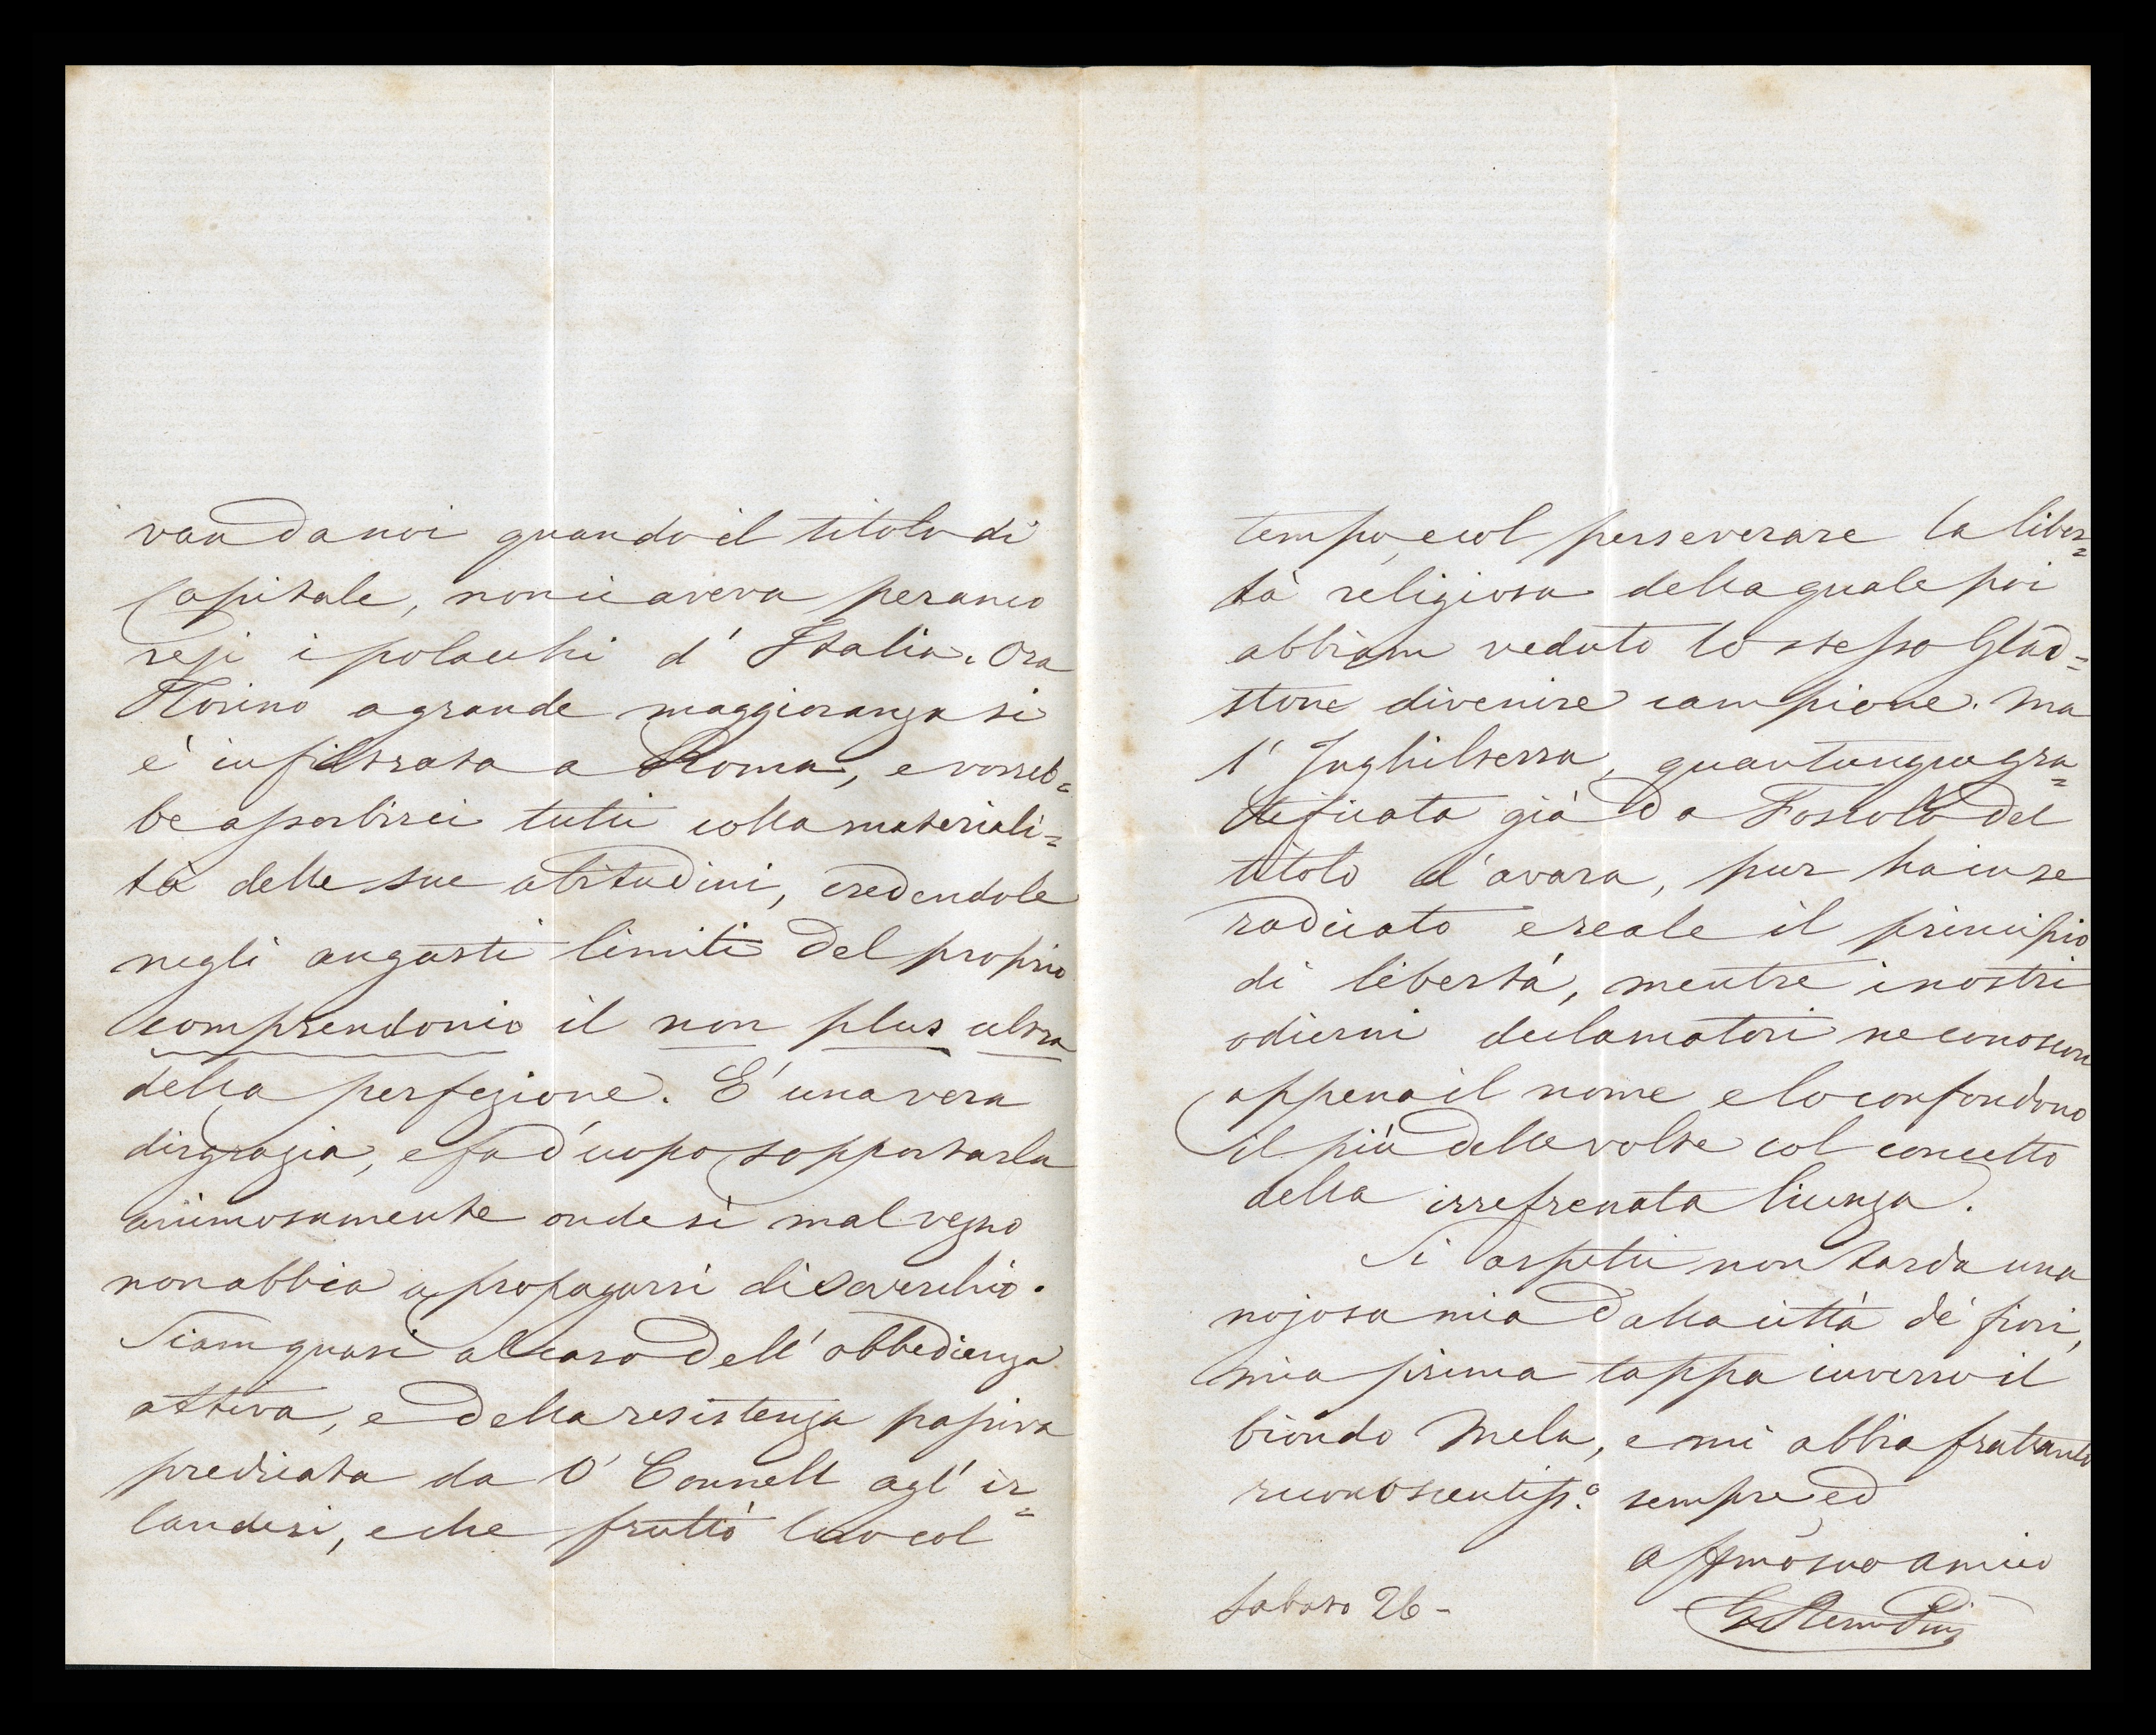 van da noi quando il titolo di
Capitale, non ci aveva peranco
resi i polacchi d' Italia. Ora
Torino a grande maggioranza si
è infiltrata a Roma, e vorreb=
be assorbirci tutti colla materiali=
tà delle sue abitudini, credendole
negli angusti limiti del proprio
comprendonio il non plus ultra
della perfezione. E' una vera
disgrazia, e fa d'uopo sopportarla
animosamente onde sì mal vezzo
non abbia a propagarsi di soverchio.
Siam quasi al caso dell' obbedienza
attiva, e della resistenza passiva
predicata da O' Connell agl' ir=
landesi, e che fruttò loro col
tempo, e col perseverare la liber=
tà religiosa della quale poi
abbiam veduto lo stesso Glad=
stone divenire campione. Ma
l' Inghilterra, quantunque gra=
tificata già da Foscolo del
titolo d'avara, pur ha in se
radicato e reale il principio
di libertà, mentre i nostri
odierni declamatori ne conoscon
appena il nome e lo confondono
il più delle volte col concetto
della irrefrenata licenza.
Si aspetti non tarda una
nojosa mia dalla città de' fiori,
mia prima tappa inverso il
biondo Mela, e mi abbia frattanto
riconoscentiss.o sempre ed
affmo suo amico
Sabato 26 -